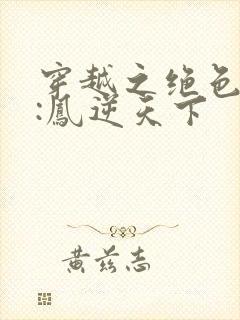 穿越之绝色
:鳳逆天下
黄兹志